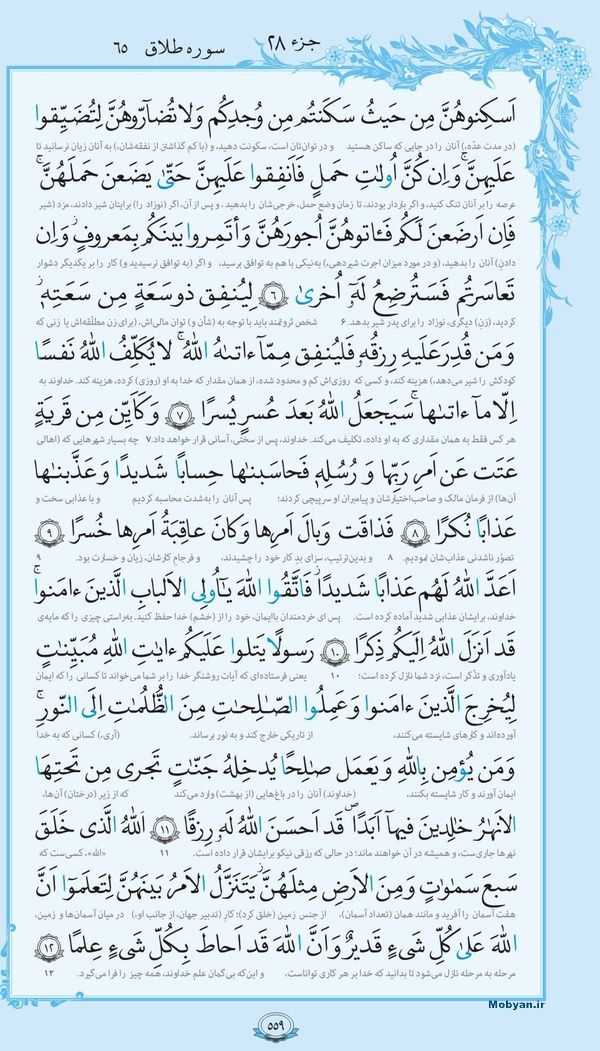 جزء ۲۸
سوره طلاق ۶۵
اَسكِنوهُنَّ مِن حَيثُ سَكَنتُم مِن وُجدِكُم وَلا تُضآرّوهُنَّ لِتُضَيِّقوا
(در مدت عدّه،) آنان را در جایی که ساکن هستید و در توان‌تان است، سکونت دهید، و (با کم گذاشتن از نفقه‌شان،) به آنان زیان نرسانید تا
عَلَيهِنَّ ۚ وَ اِن كُنَّ اُولاتِ حَملٍ فَاَنفِقوا عَلَيهِنَّ حَتّىٰ يَضَعنَ حَملَهُنَّ ۚ
عرصه را بر آنان تنگ کنید، و اگر باردار بودند، تا زمان وضع حمل، خرجی‌شان را بدهید، و پس از آن، اگر (نوزاد را) برایتان شیر دادند، مزد (شیر
فَاِن اَرضَعنَ لَكُم فَـٔاتوهُنَّ اُجورَهُنَّ وَ أتَمِروا بَينَكُم بِمَعروفٍ ۖ وَ اِن
دادن) آنان را بدهید، (و در مورد میزان اجرت شیردهی،) به‌نیکی با هم به توافق برسید، و اگر (به توافق نرسیدید و) کار را بر یکدیگر دشوار
تَعاسَرتُم فَسَتُرضِعُ لَهٗٓ اُخرىٰ ۶ لِيُنفِق ذو سَعَةٍ مِن سَعَتِهٖ ۖ
کردید، (زنِ) دیگری، نوزاد را برای پدر شیر بدهد. ۶ شخص ثروتمند باید با توجه به (شأن و) توان مالی‌اش، (برای زن مطلّقه‌اش یا زنی که
وَ مَن قُدِرَ عَلَيهِ رِزقُهٗ فَليُنفِق مِمّآ ءاتىٰهُ اللّٰهُ ۚ لا يُكَلِّفُ اللّٰهُ نَفسًا
کودکش را شیر می‌دهد،) هزینه کند، و کسی که روزی‌اش کم و محدود شده، از همان مقدار که خدا به او (روزی) کرده، هزینه کند. خداوند به
اِلّا مآ ءاتىٰها ۚ سَيَجعَلُ اللّٰهُ بَعدَ عُسرٍ يُسرًا ۷ وَ كَاَيِّن مِن قَريَةٍ
هر کس فقط به همان مقداری که به او داده، تکلیف می‌کند. خداوند، پس از سختی، آسانی قرار خواهد داد. ۷ چه بسیار شهرهایی که (اهالی
عَتَت عَن اَمرِ رَبِّها وَ رُسُلِهٖ فَحاسَبنٰها حِسابًا شَديدًا وَ عَذَّبنٰها
آن‌ها) از فرمان مالک و صاحب‌اختیارشان و پیامبران او سرپیچی کردند؛ پس آنان را به‌شدت محاسبه کردیم و با عذابی سخت و
عَذابًا نُكرًا ۸ فَذاقَت وَبالَ اَمرِها وَ كانَ عاقِبَةُ اَمرِها خُسرًا ۹
تصوّر ناشدنی عذاب‌شان نمودیم. ۸ و بدین‌ترتیب، سزای بدِ کار خود را چشیدند، و فرجام کارشان، زیان و خسارت بود. ۹
اَعَدَّ اللّٰهُ لَهُم عَذابًا شَديدًا ۖ فَاتَّقُوا اللّٰهَ يٰٓاُولِى الاَلبابِ الَّذينَ ءامَنوا ۚ
خداوند، برایشان عذابی شدید آماده کرده است. پس ای خردمندان باایمان، خود را از (خشم) خدا حفظ کنید. به‌راستی چیزی را که مایه‌ی
قَد اَنزَلَ اللّٰهُ اِلَيكُم ذِكرًا ۱۰ رَسولًا يَتلوا عَلَيكُم ءايٰتِ اللّٰهِ مُبَيِّنٰتٍ
یادآوری و تذکر است، نزد شما نازل کرده است؛ ۱۰ یعنی فرستاده‌ای که آیات روشنگر خدا را بر شما می‌خواند تا کسانی را که ایمان
لِيُخرِجَ الَّذينَ ءامَنوا وَ عَمِلُوا الصّٰلِحٰتِ مِنَ الظُّلُمٰتِ اِلَى النّورِ ۚ
آورده‌اند و کارهای شایسته می‌کنند، از تاریکی خارج کند و به نور برساند. (آری،) کسانی که به خدا
وَ مَن يُؤمِن بِاللّٰهِ وَ يَعمَل صٰلِحًا يُدخِلهُ جَنّٰتٍ تَجرى مِن تَحتِهَا
ایمان آورند و کار شایسته بکنند، (خداوند) آنان را در باغ‌هایی (از بهشت) وارد می‌کند که از زیر (درختان) آن‌ها،
الاَنهٰرُ خٰلِدينَ فيهآ اَبَدًا ۖ قَد اَحسَنَ اللّٰهُ لَهٗ رِزقًا ۱۱ اَللّٰهُ الَّذى خَلَقَ
نهرها جاری‌ست، و همیشه در آن خواهند ماند؛ در حالی که رزقی نیکو برایشان قرار داده است. ۱۱ «الله»، کسی‌ست که
سَبعَ سَمٰوٰتٍ وَ مِنَ الاَرضِ مِثلَهُنَّ يَتَنَزَّلُ الاَمرُ بَينَهُنَّ لِتَعلَموٓا اَنَّ
هفت آسمان را آفرید و مانند همان (تعداد آسمان)، از جنس زمین (خلق کرد)؛ کارِ (تدبیر جهان، از جانب او،) در میان آسمان‌ها و زمین،
اللّٰهَ عَلىٰ كُلِّ شَىءٍ قَديرٌ وَ اَنَّ اللّٰهَ قَد اَحاطَ بِكُلِّ شَىءٍ عِلمًا ۱۲
مرحله به مرحله نازل می‌شود تا بدانید که خدا بر هر کاری تواناست، و این‌که بی‌گمان علم خداوند، همه چیز را فرا می‌گیرد. ۱۲
Mobyan.ir
۵۵۹